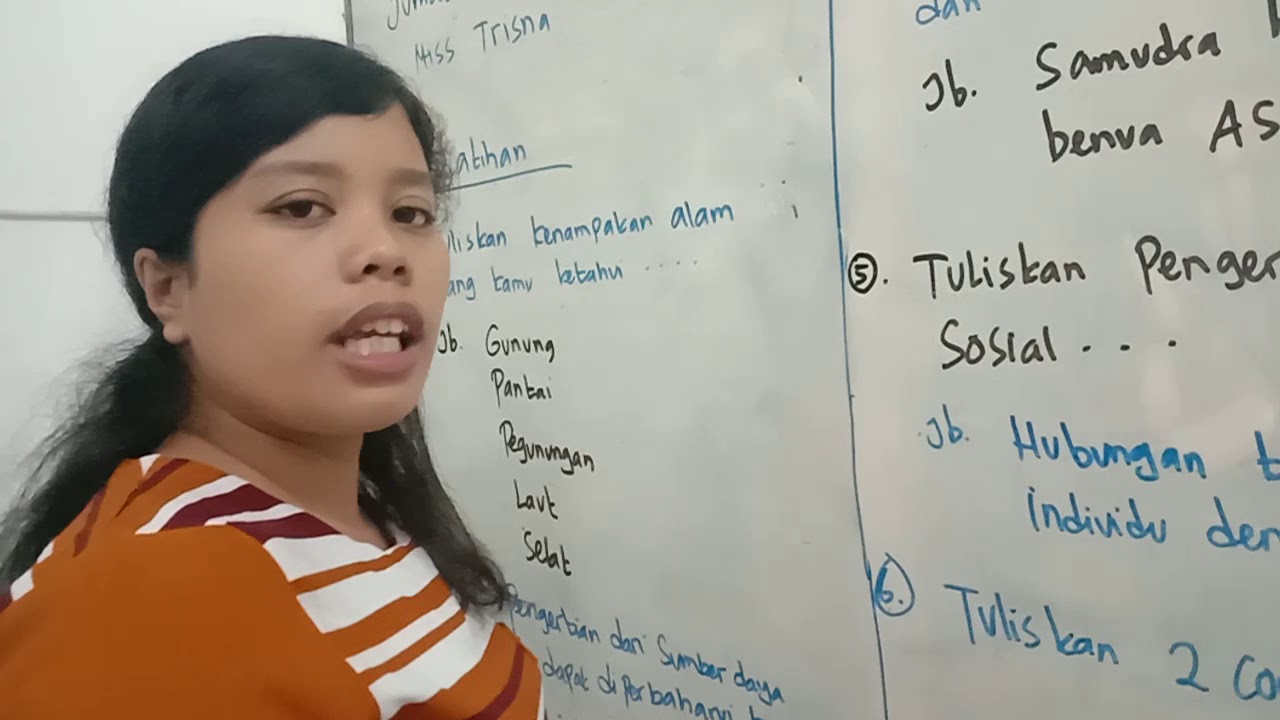 Miss Trisna
atihan
liskan kenampakan alam
ang kamu ketahui ....
Jb. Gunung
Pantai
Pegunungan
Laut
Selat
Pengertian dari Sumber daya
dapat di perbaharui
dan
Jb. Samudra
benua AS
5. Tuliskan Penger
Sosial ...
Jb. Hubungan t
individu den
6. Tuliskan 2 Co